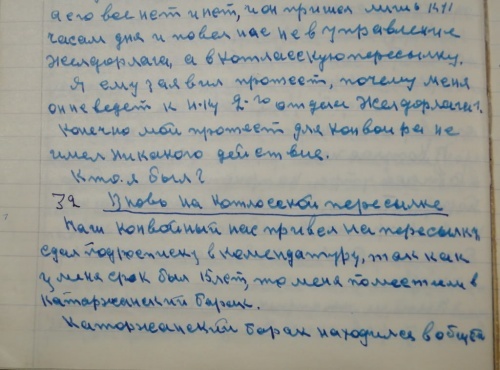 а его все нет и нет, и он пришел лишь к 11
часам дня и повел нас не в управление
Желдорлага, а в котласскую пересылку.
Я ему заявил протест, почему меня
он не ведет к н-ку 2-го отдела Желдорлага?.
Конечно мой протест для конвоира не
имел никакого действие.
Кто я был?
32 Вновь на Котлосской пересылке
Наш конвойный нас привел на пересылку,
сдал под росписку в комендатуру, так как
у меня срок был 15 лет, то меня поместили в
каторжанский барак.
Каторжанский барак находился в общей